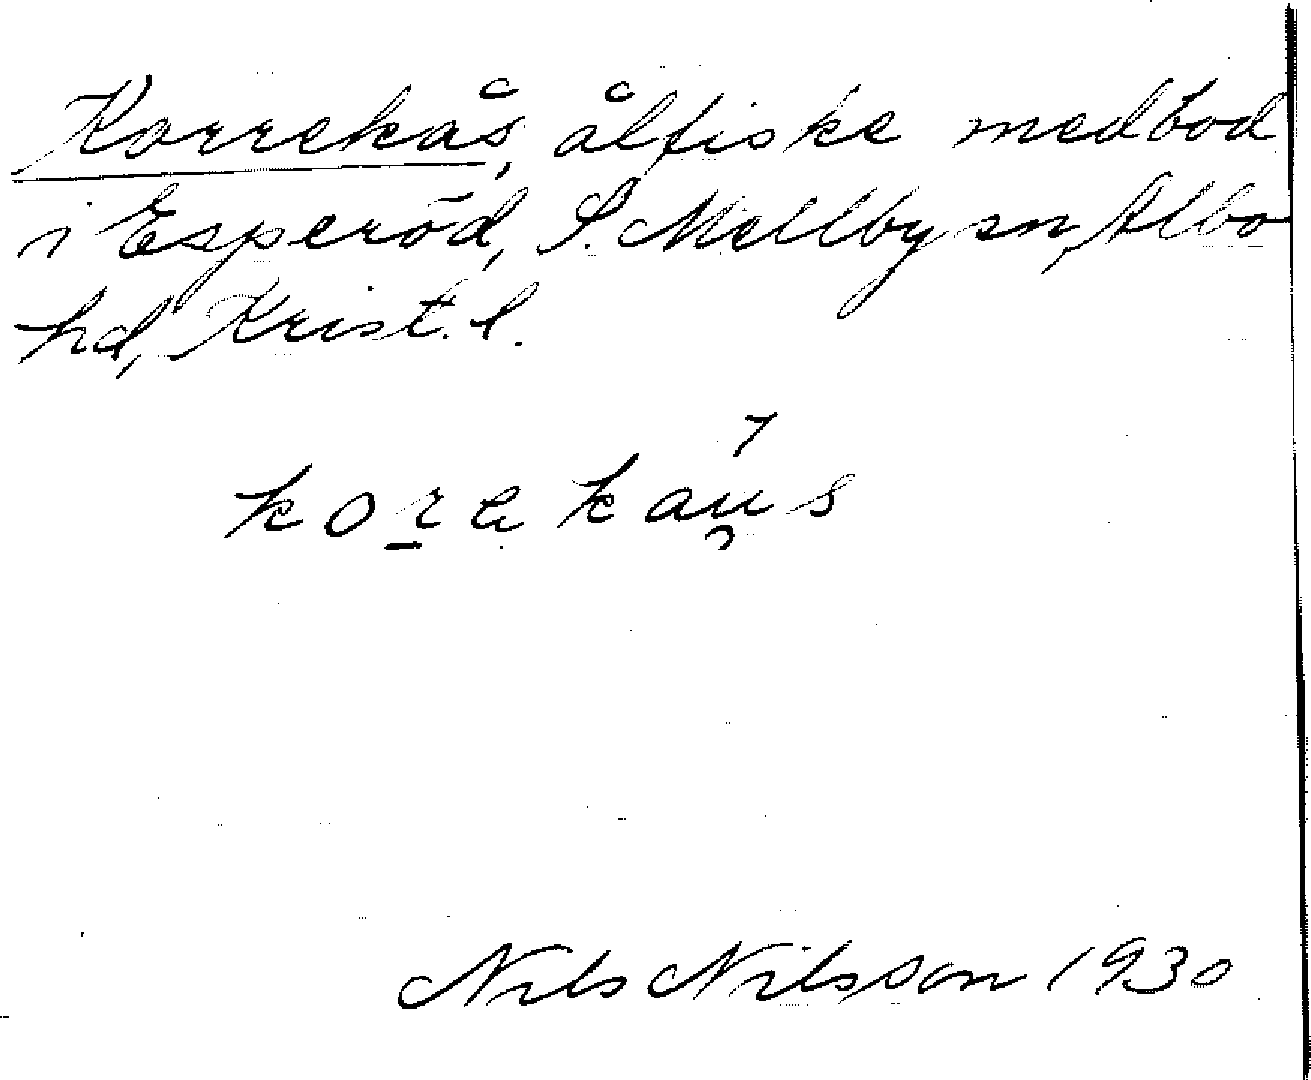 Korrekås, ålfiske med bod
i Esperöd, S. Mellby sn, Albo
hd, Krist. l.
korekau̯s
Nils Nilsson 1930